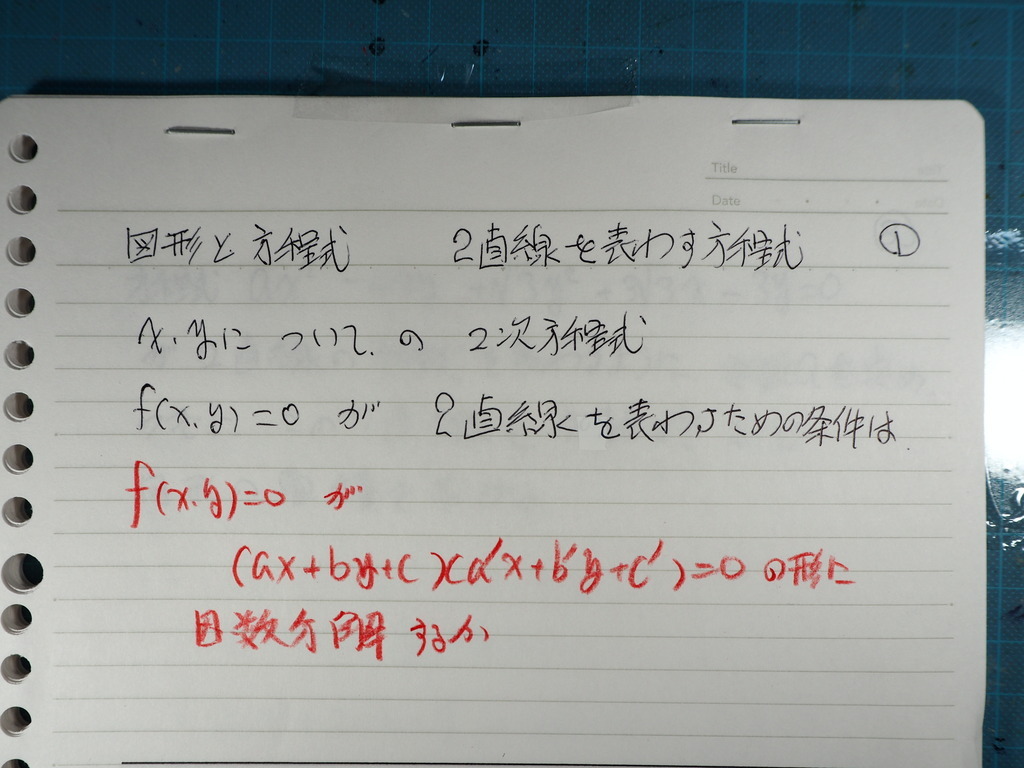 Title
Date
図形と方程式 2直線を表わす方程式 ①
x,yについて、の 2次方程式
f(x,y)=0 が 2直線を表わすための条件は
f(x,y)=0 が
(ax+by+c)(a'x+b'y+c')=0 の形に
因数分解するか